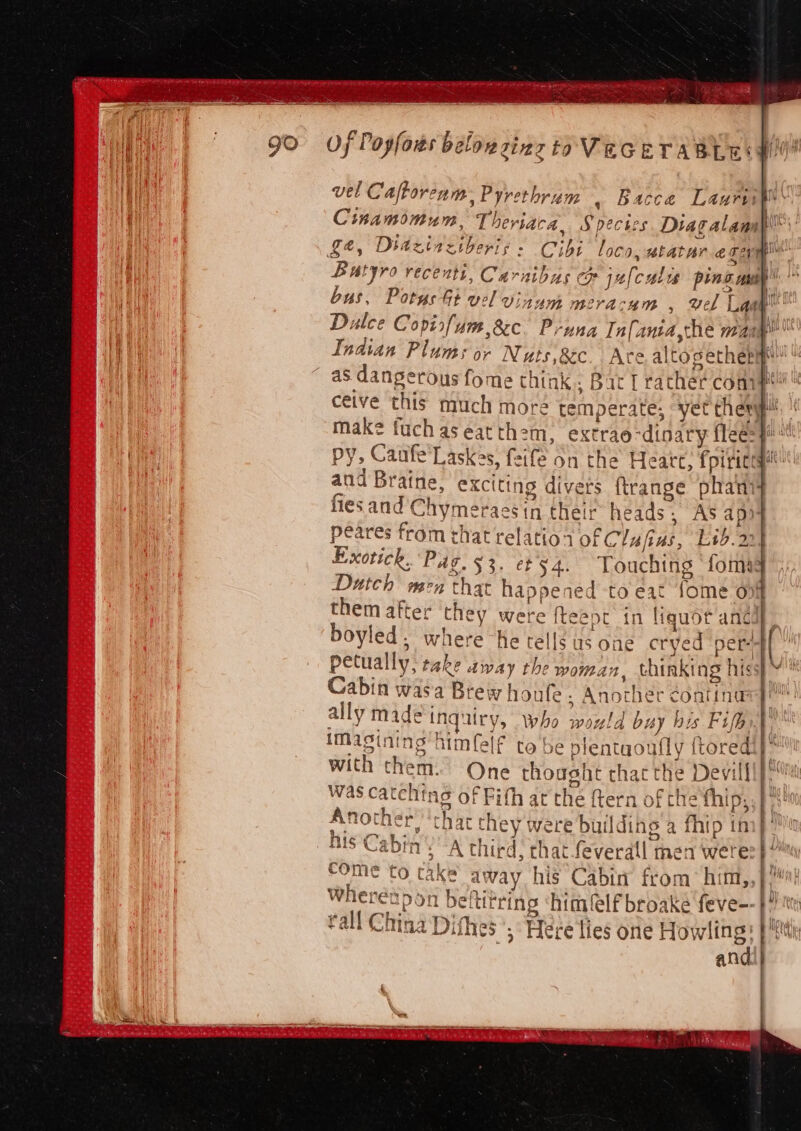 90 Of Poysons belonging to VEGETABLES
vel Castoreum, Pyrethrum , Bacca Lauri
Cinamomum, Theriaca, Species Diagalan
ga, Diazinziberis : Cibi loco, utatur
Butyro recenti, Carnibus & jusculis
bus, Potus sit vel vinum meracum , vel
Dulce Copiosum, &c. Pruna Insania, the
Indian Plums or Nuts, &c. Are altogether
as dangerous some think; But I rather con
ceive this much more temperate; yet they
make such as eat them, extrao-dinary slee-
py, Cause Laskes, seise on the Heart, spirits
and Braine, exciting divers strange phan
sies and Chymeraes in their heads; As ap
peares from that relation of Clusius, Lib. 2
Exotick, Pag. 53. et 54. Touching some
Dutch men that happened to eat some of
them after they were steept in liquor and
boyled; where he tells us one cryed per-
petually, take away the woman, thinking his
Cabin was a Brew house; Another continu-
ally made inquiry, who would buy his Fish,
imagining himself to be plenteously stored
with them. One thought that the Devill
was catching of Fish at the stern of the ship;
Another, that they were building a ship in
his Cabin; A third, that severall men were
come to take away his Cabin from him,
whereupon bestirring himself broake seve-
rall China Dishes; Here lies one Howling;
and